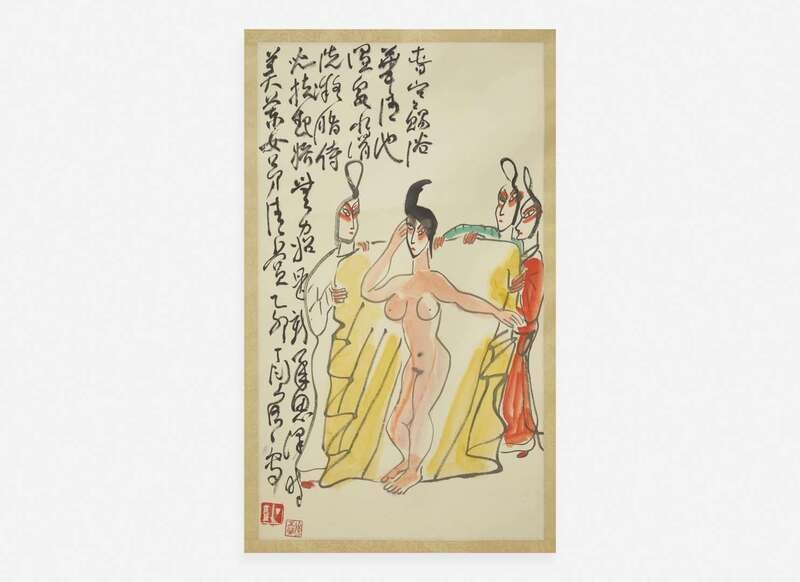 春寒賜浴
華清池
溫泉水滑
洗凝脂侍
兒扶起嬌無力始是新承恩澤時
美女士清賞乙卯丁衍庸寫